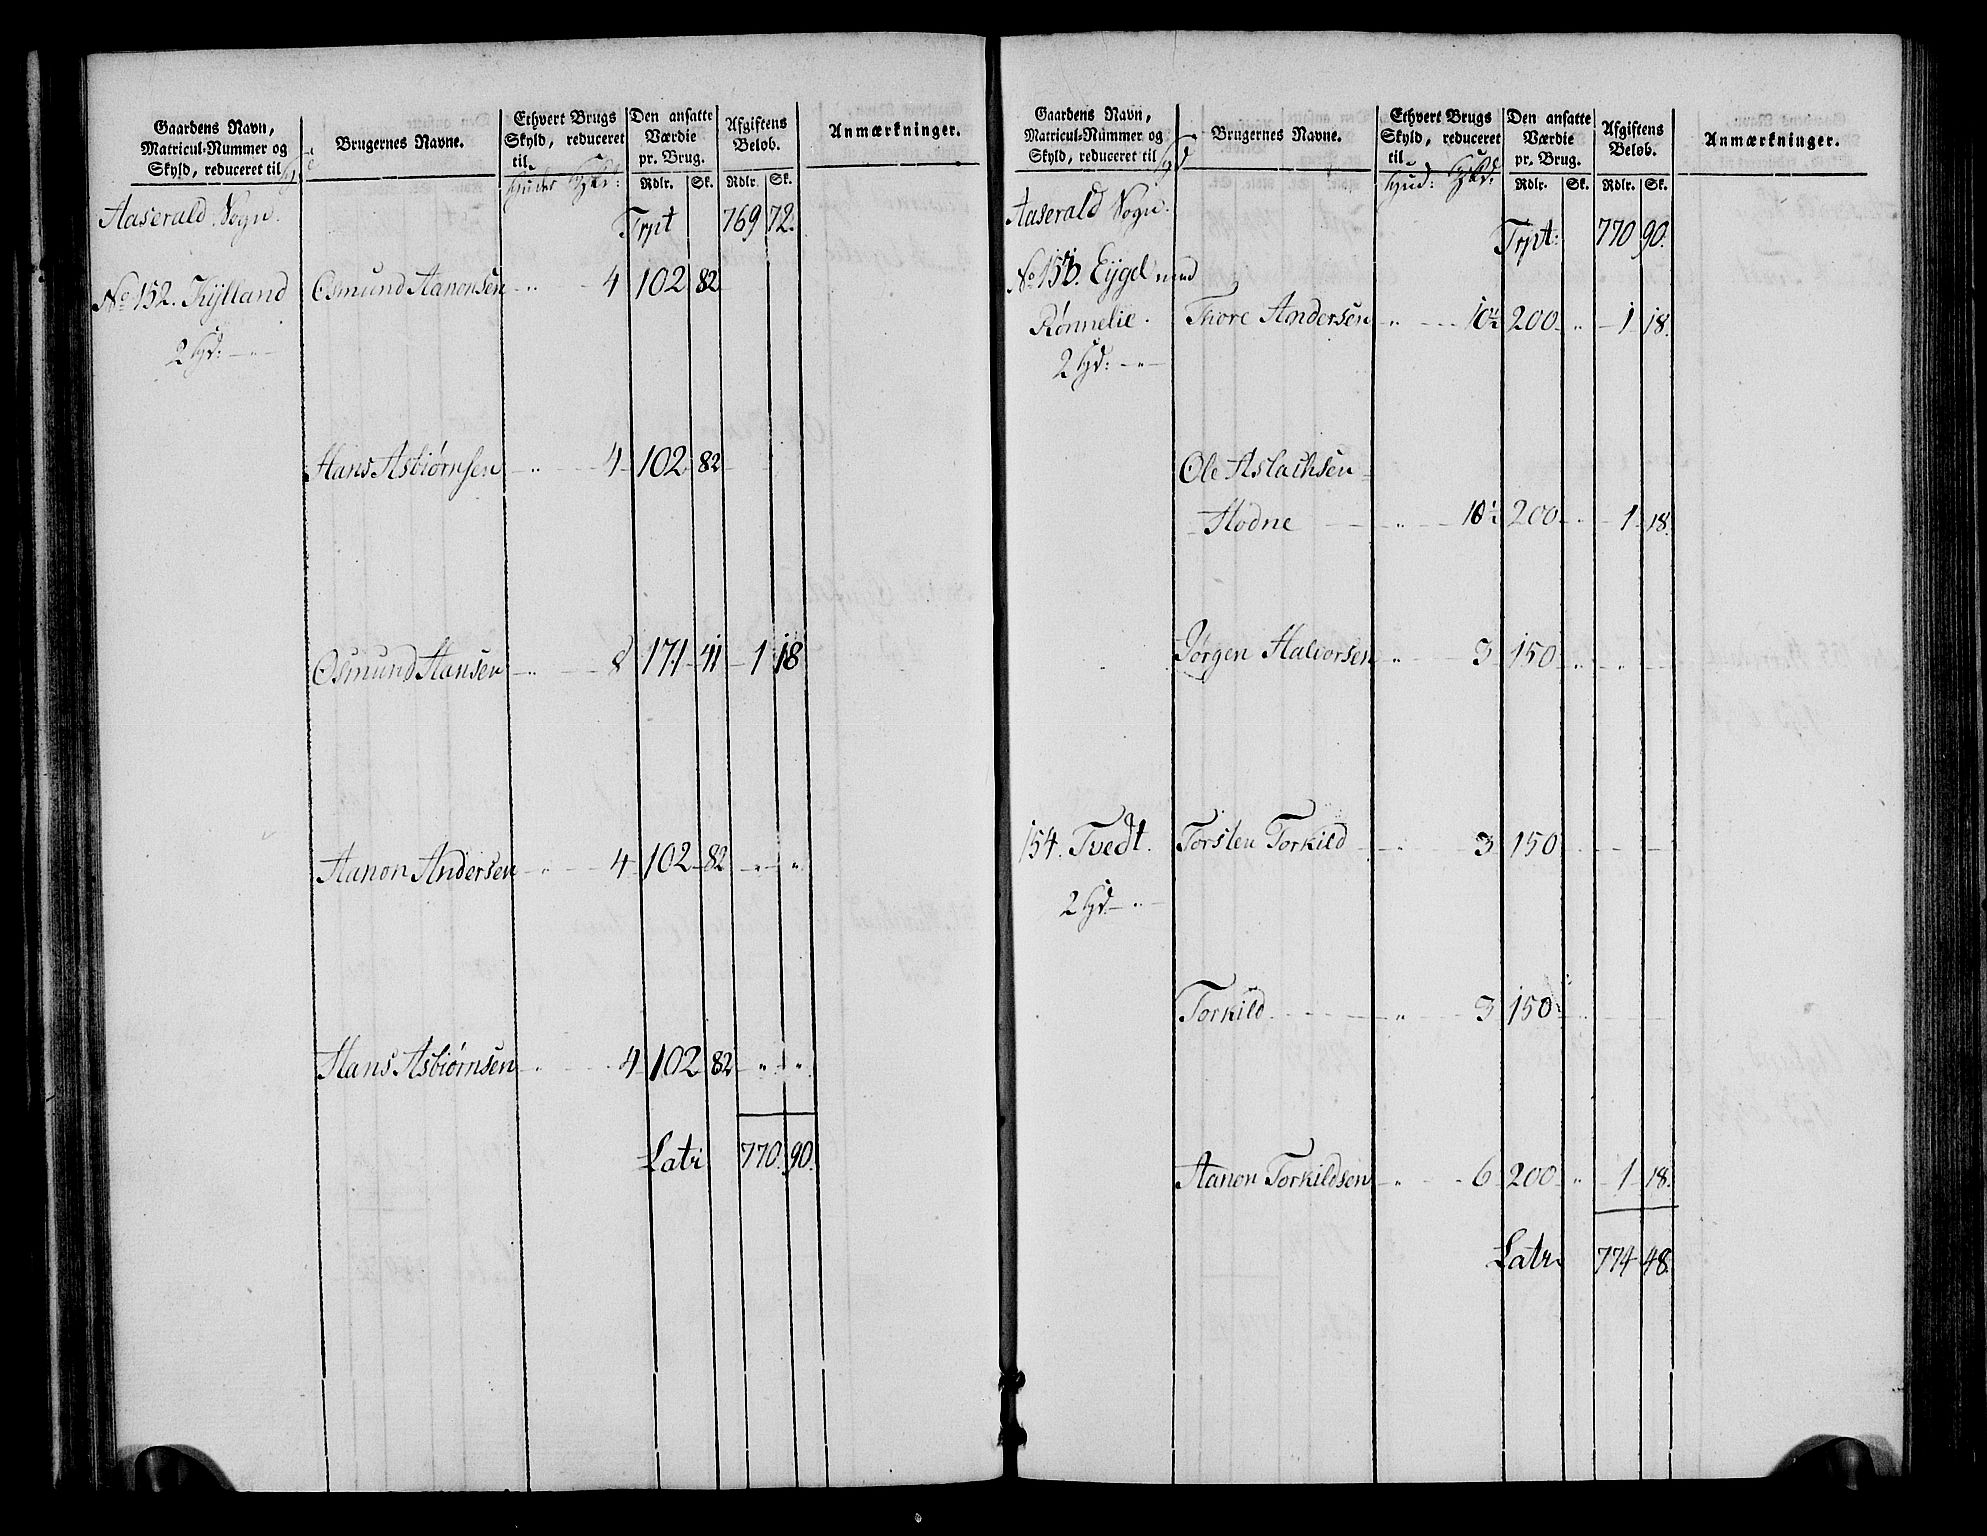 Gaardens Navn,
Matricul-Nummer og
Skyld, reduceret til
Brugernes Navne.
Ethvert Brugs
Skyld, reduceret
til
Huder
Den ansatte
Værdie
pr. Brug.
Rdlr. Sk.
Afgiftens
Beløb.
Rdlr. Sk.
Anmærkninger.
Aaserald Sogn.
Trpt 769 72.
No 152. Kylland Osmund Aanonsen " 4 102 82
2 Hd: "
Hans Asbiørnsen " 4 102 82
Osmund Hansen " 8 171 41 1 18
Aanon Andersen " 4 102 82 " "
Hans Asbiørnsen " 4 102 82 " "
Latr 770. 90.
Gaardens Navn,
Matricul-Nummer og
Skyld, reduceret til
Brugernes Navne.
Ethvert Brugs
Skyld, reduceret
til
Hud:
Den ansatte
Værdie
pr. Brug.
Rdlr. Sk.
Afgiftens
Beløb.
Rdlr. Sk.
Anmærkninger.
Aaserald Sogn.
Trpt: 770 90.
No 153. Eygel med
Rønnelie. Thore Andersen " 10½ 200 " 1 18.
2 Hd: "
Ole Aslachsen
Hodne " 10½ 200 " 1 18.
Jørgen Halvorsen " 3 150 " " "
154. Tvedt. Torsten Torkild " 3 150
2 Hd "
Torkild " 3 150 "
Aanon Torkildsen " 6 200 " 1 18.
Latr 774 48.